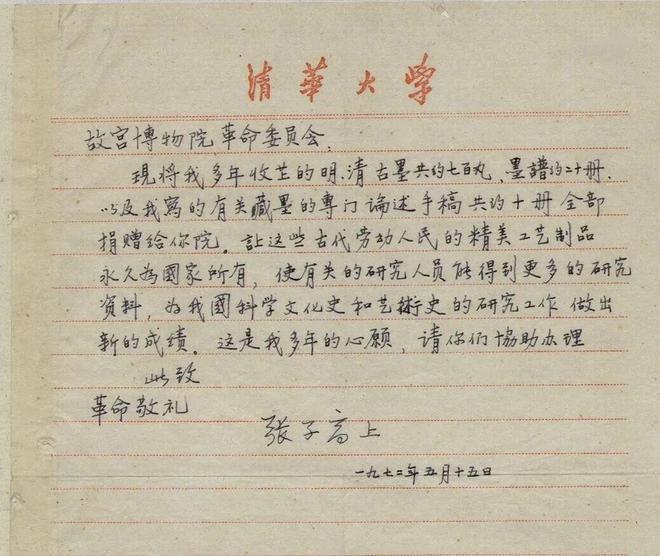 清華大学
故宫博物院革命委员会.
現将我多年收芷的明.清古墨共约七百丸、墨譜约二十册.
以及我寫的有关藏墨的專门論述手稿共约十册全部
捐贈给你院。訁让这些古代劳动人民的精美工艺制品
永久為國家所有，使有关的研究人员能得到更多的研究
資料，为我國科学文化史和艺術史的研究工作做出
新的成绩。这是我多年的心愿，请你们協助办理
此致
革命敬礼
張子高上
一九七二年五月十五日